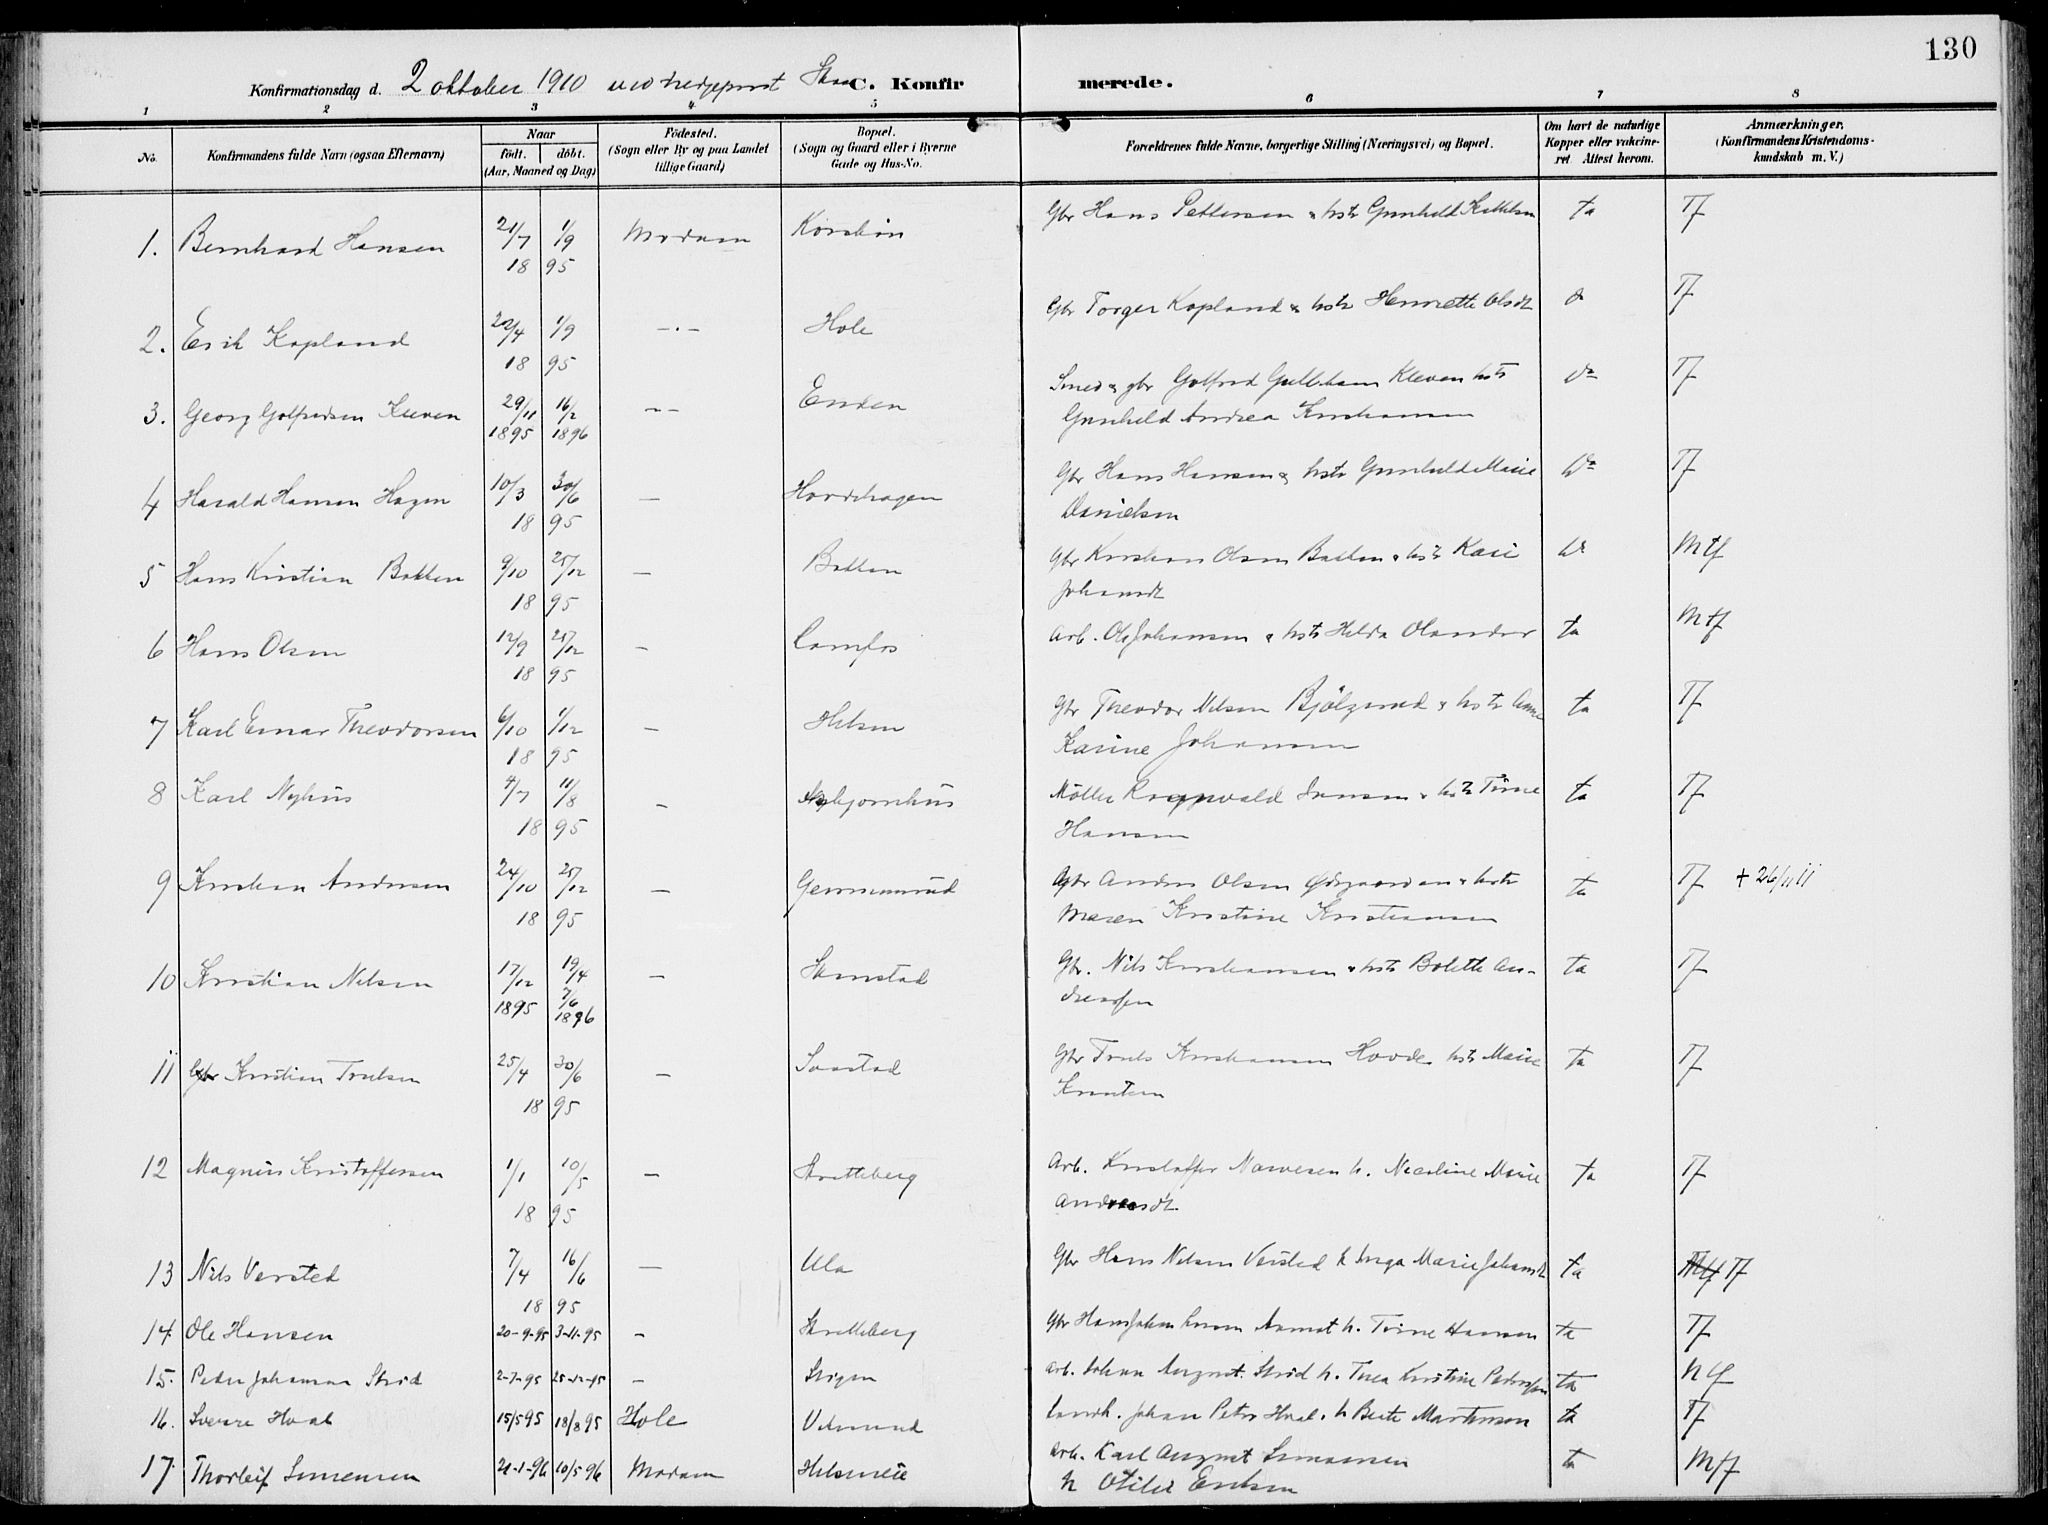 130
Konfirmationsdag d. 2 oktober 1910 C. Konfirmerede.
1 2 3 4 5 6 7 8
No. Konfirmandens fulde Navn (ogsaa Efternavn) Naar født, døbt. (Aar, Maaned og Dag) Fødested. (Sogn eller By og paa Landet tillige Gaard) Bopæl. (Sogn og Gaard eller i Byerne Gade og Hus-No. Forældrenes fulde Navne, borgerlige Stilling (Næringsvei) og Bopæl. Om havt de naturlige Kopper eller vakcineret Attest herom. Anmærkninger, (Konfirmandens Kristendomskundskab m. V.)
1. Bernhard Hansen 21/7 1/9 Modum Gbr Hans Pettersen & hstr Gunhild ta Tf
18 95
2. Erik Kopland 20/4 1/9 —·— Hole Gbr Torger Kopland & hstr Henrette Olsdt Tf
18 95
3. Georg Golfredsen Kleven 29/11 16/2 —— Enden Smed & gbr Golfred Kleven hstr Tf
1895 1896 Gunhild Andrea Kristiansen
4 Harald Hansen Hagen 10/3 30/6 — Gbr Hans Hansen & hstr Gunhild Marie Tf
18 95 Danielsen
5 Hans Kristian Bakken 9/10 25/12 — Bakken Gbr Kristian Olsen Bakken & hstr Kari Mtf
18 95 Johansdt
6 Hans Olsen 12/9 25/12 — Camfos Arb. Ole Johansen & hstr Hilda Olander ta Mtf
18 95
7 Karl Einar Theodorsen 6/10 1/12 — Helsen Gbr Theodor Nilsen Bjølgerud & hstr Anne ta Tf
18 95 Karine Johansen
8 Karl Nyhus 4/7 11/8 — Møller Ragnvald Jensen & hstr Tine ta Tf
18 95 Hansen
9 Kristian Andersen 24/10 25/12 — Gbr Anders Olsen & hstr ta Tf + 26/11 11
18 95 Maren Kristine Kristiansen
10 Kristian Nilsen 17/12 19/4 — Gbr. Nils Kristiansen & hstr Bolette An- ta Tf
1895 7/6 1896 dreassen
11 Kristian Trulsen 25/4 30/6 — Gbr Truls Kristiansen Hovde hstr Marie ta Tf
18 95 Knutsen
12 Magnus Kristoffersen 1/1 10/5 — Skretteberg Arb. Kristoffer Narvesen h. Nicoline Marie ta Tf
18 95 Andreasdt.
13 Nils Versted 7/4 16/6 — Ula Gbr Hans Nilsen Versted h Inga Marie Johansdt ta Tf
18 95
14 Ole Hansen 20-9-95 3-11-95 — Skretteberg Gbr Hans Johan h. Tine Hansen ta Tf
15. Peder Johansen Strid 2-7-95 25-12-95 — Arb. Johan August Strid h. Thea Kristine Pedersen ta
16. Sverre Hval 15/5 95 18/8 95 Hole Johan Peter Hval h Berte Martinsen ta Tf
17. Thorleif Simensen 21-1-96 10/5 96 Modum Arb. Karl August Simensen ta
h Otilie Eriksen